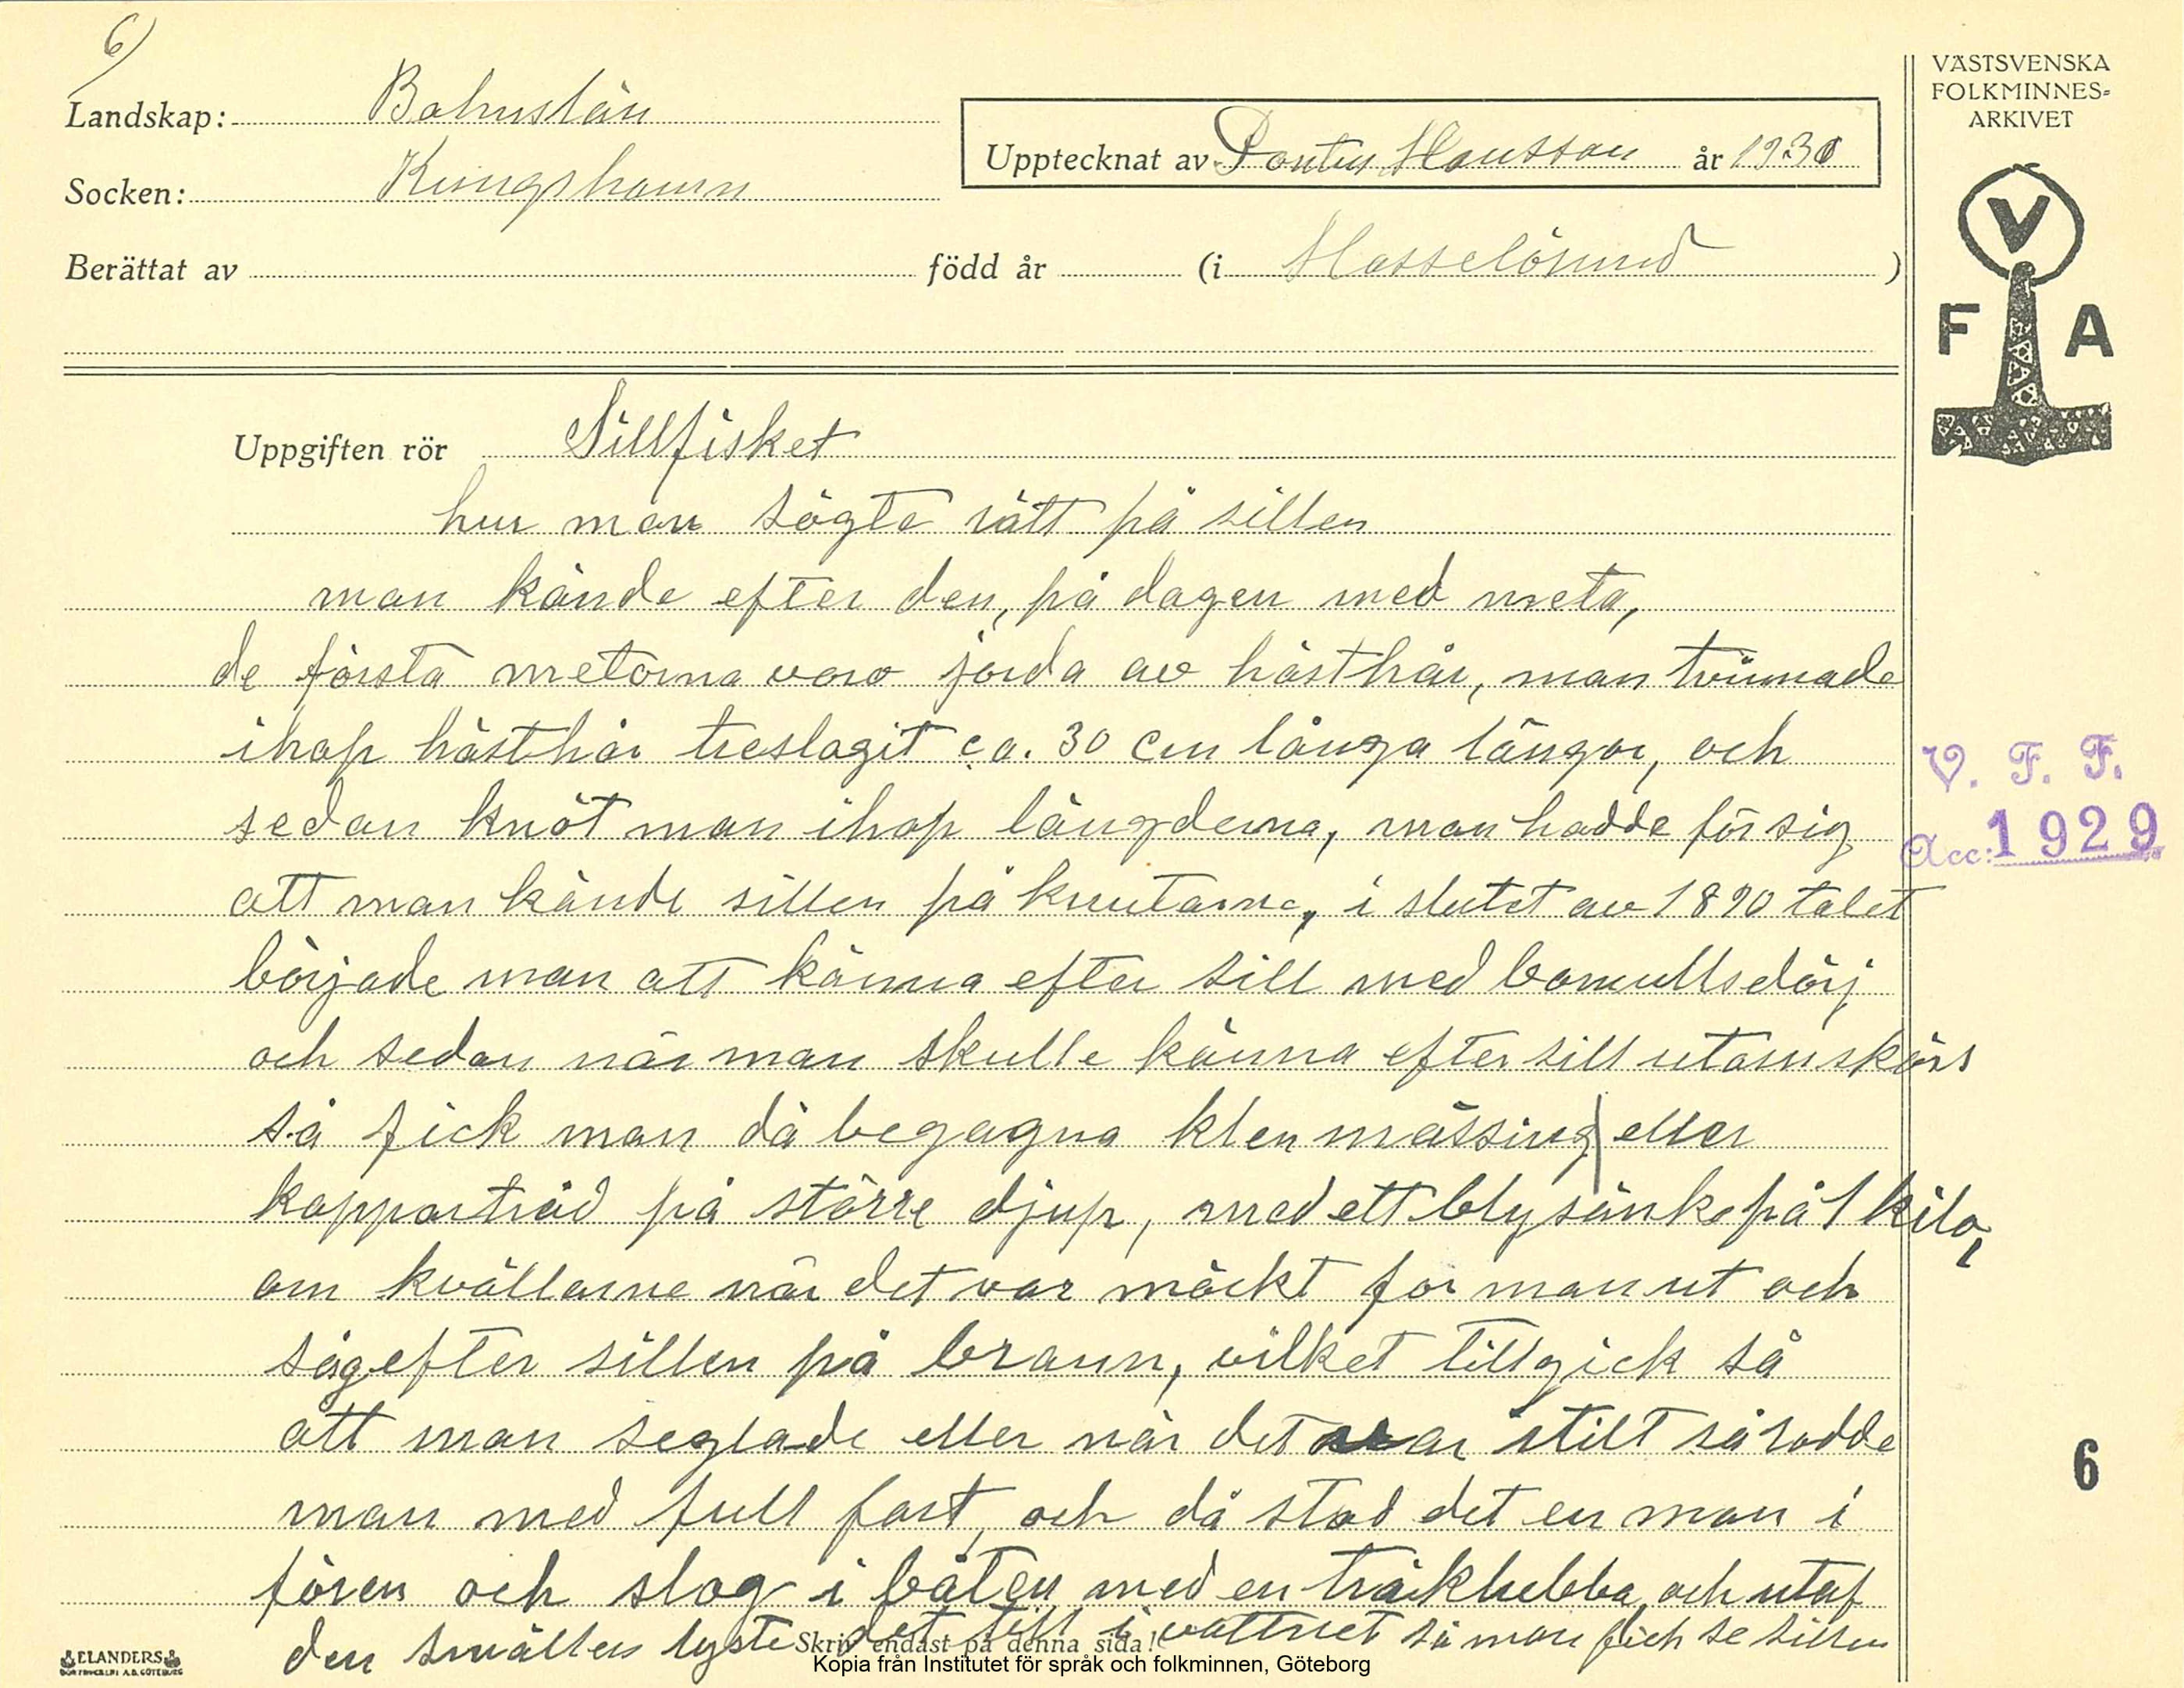 6)
Landskap: Bohuslän
Socken: Kungshamn
Upptecknat av Pontus Hansson år 1930
Berättat av född år (i Hasselösund)
VÄSTSVENSKA
FOLKMINNES-
ARKIVET
V
F A
Uppgiften rör Sillfisket
hur man sögte rätt på sillen
man kände efter den, på dagen med meta,
de första metorna voro jorda av hästhår, man tvinnade
ihop hästhår treslagit ca. 30 cm långa längor, och
sedan knöt man ihop längderna, man hadde för sig
att man kände sillen på knutarna, i slutet av 1890 talet
började man att känna efter sill med bomullsdörj
och sedan när man skulle känna efter sill utomskärs
så fick man då begagna klen mässing eller
koppartråd på större djup, med ett blysänke på 1 kilo,
om kvällarne när det var mörkt for man ut och
såg efter sillen på brann, vilket tillgick så
att man seglade eller när det var stilt så rodde
man med full fart, och då stod det en man i
fören och slog i båten med en träklubba, och utaf
den smällen lyste det till i vattnet så man fick se sillen
V. F. F.
Acc: 1929
6
ELANDERS
BOKTRYCKERI A.B. GÖTEBORG
Skriv endast på denna sida!
Kopia från Institutet för språk och folkminnen, Göteborg